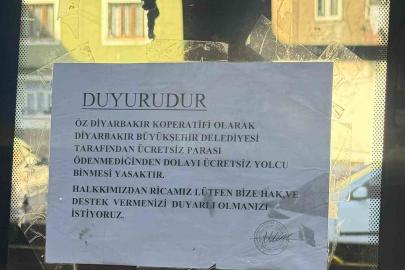 DUYURUDUR
ÖZ DİYARBAKIR KOPERATİFİ OLARAK
DİYARBAKIR BÜYÜKŞEHİR DELEDİYESİ
TARAFINDAN ÜCRETSİZ PARASI
ÖDENMEDİĞİNDEN DOLAYI ÜCRETSİZ YOLCU
BİNMESİ YASAKTIR.
HALKKIMIZDAN RİCAMIZ LÜTFEN BİZE HAK,VE
DESTEK VERMENİZİ DUYARLI OLMANIZI
İSTİYORUZ.